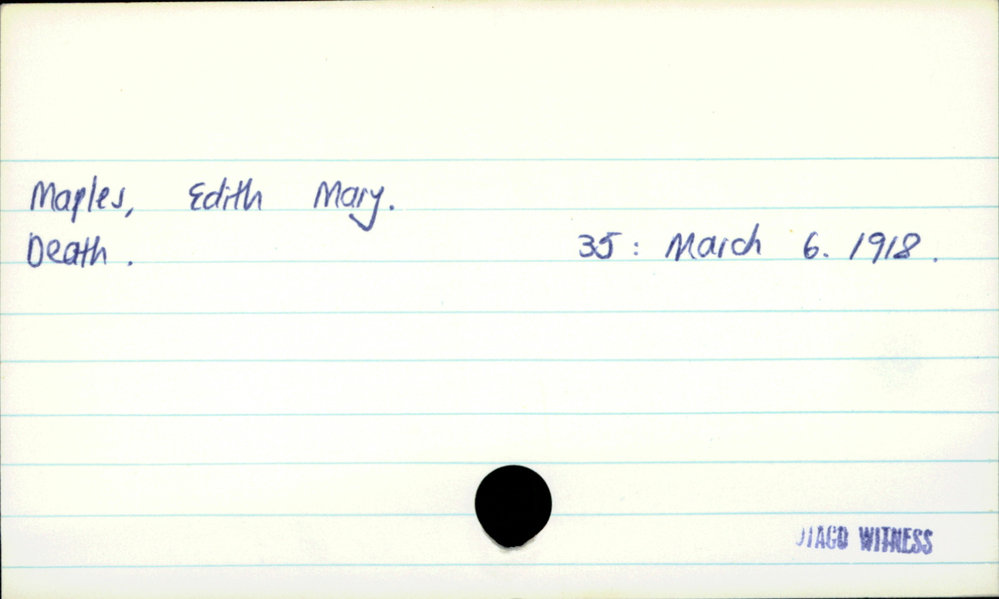 Maples, Edith Mary.
Death. 35: March 6. 1918.
WITNESS